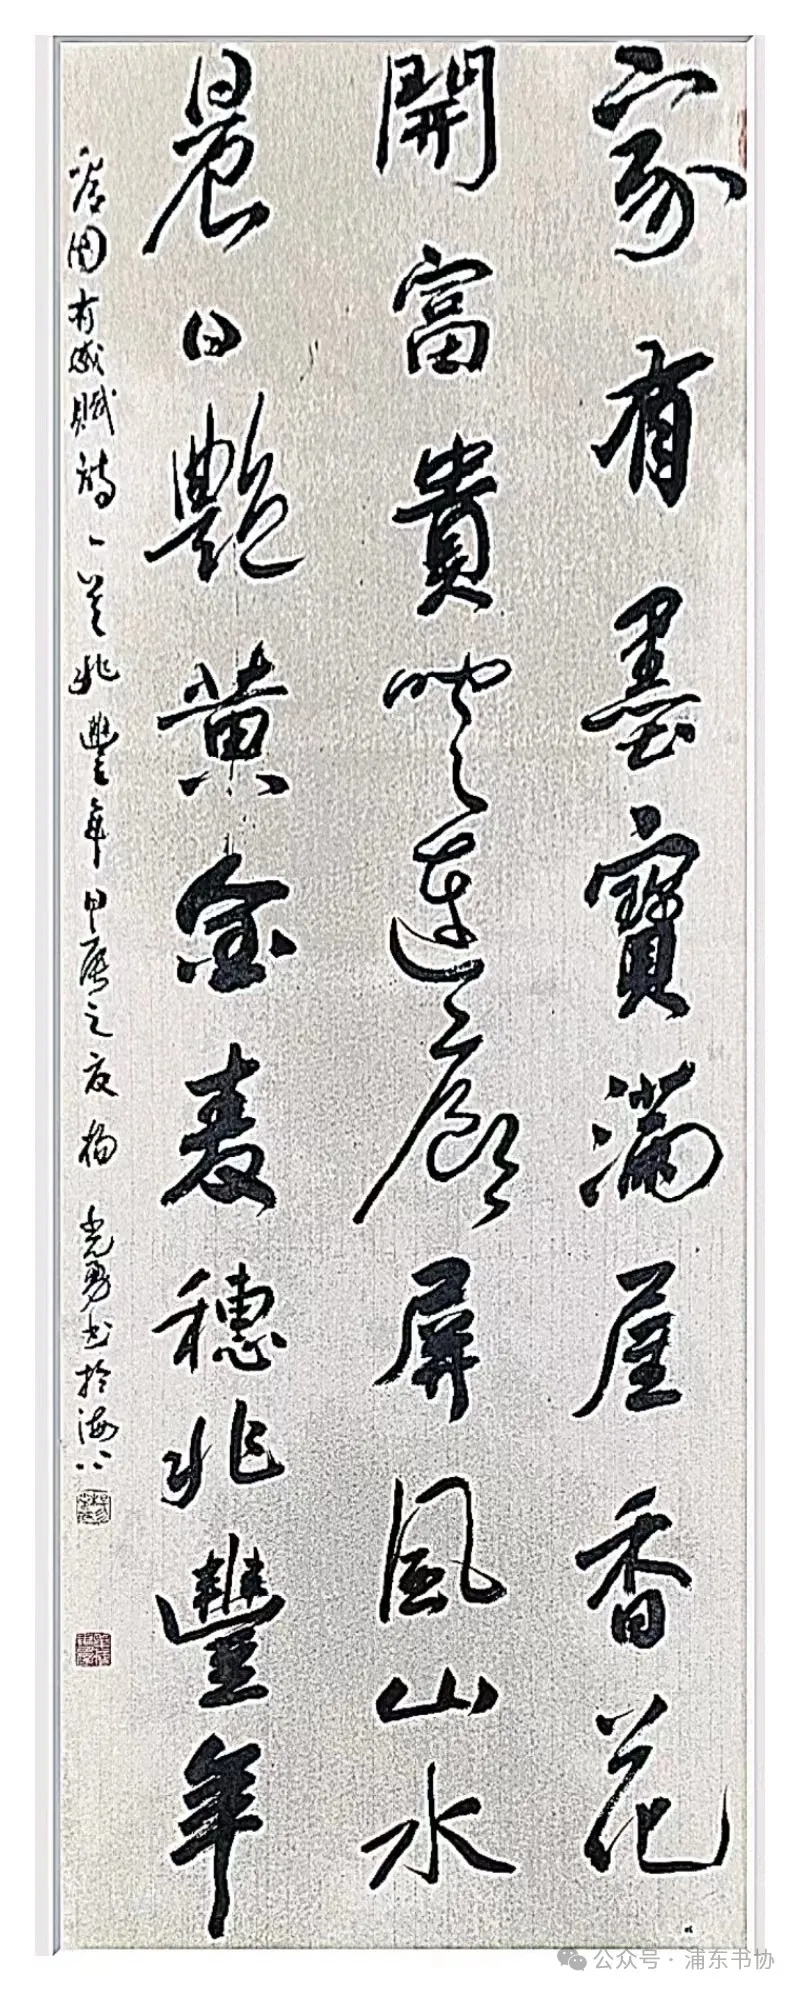 家有墨寶滿屋香花
開富貴喚連廊屏風山水
晨日艷黃金麦穗兆豐年
有感賦詩一首兆豐年甲辰之夏楊光勇书於海上
公众号·浦东书协